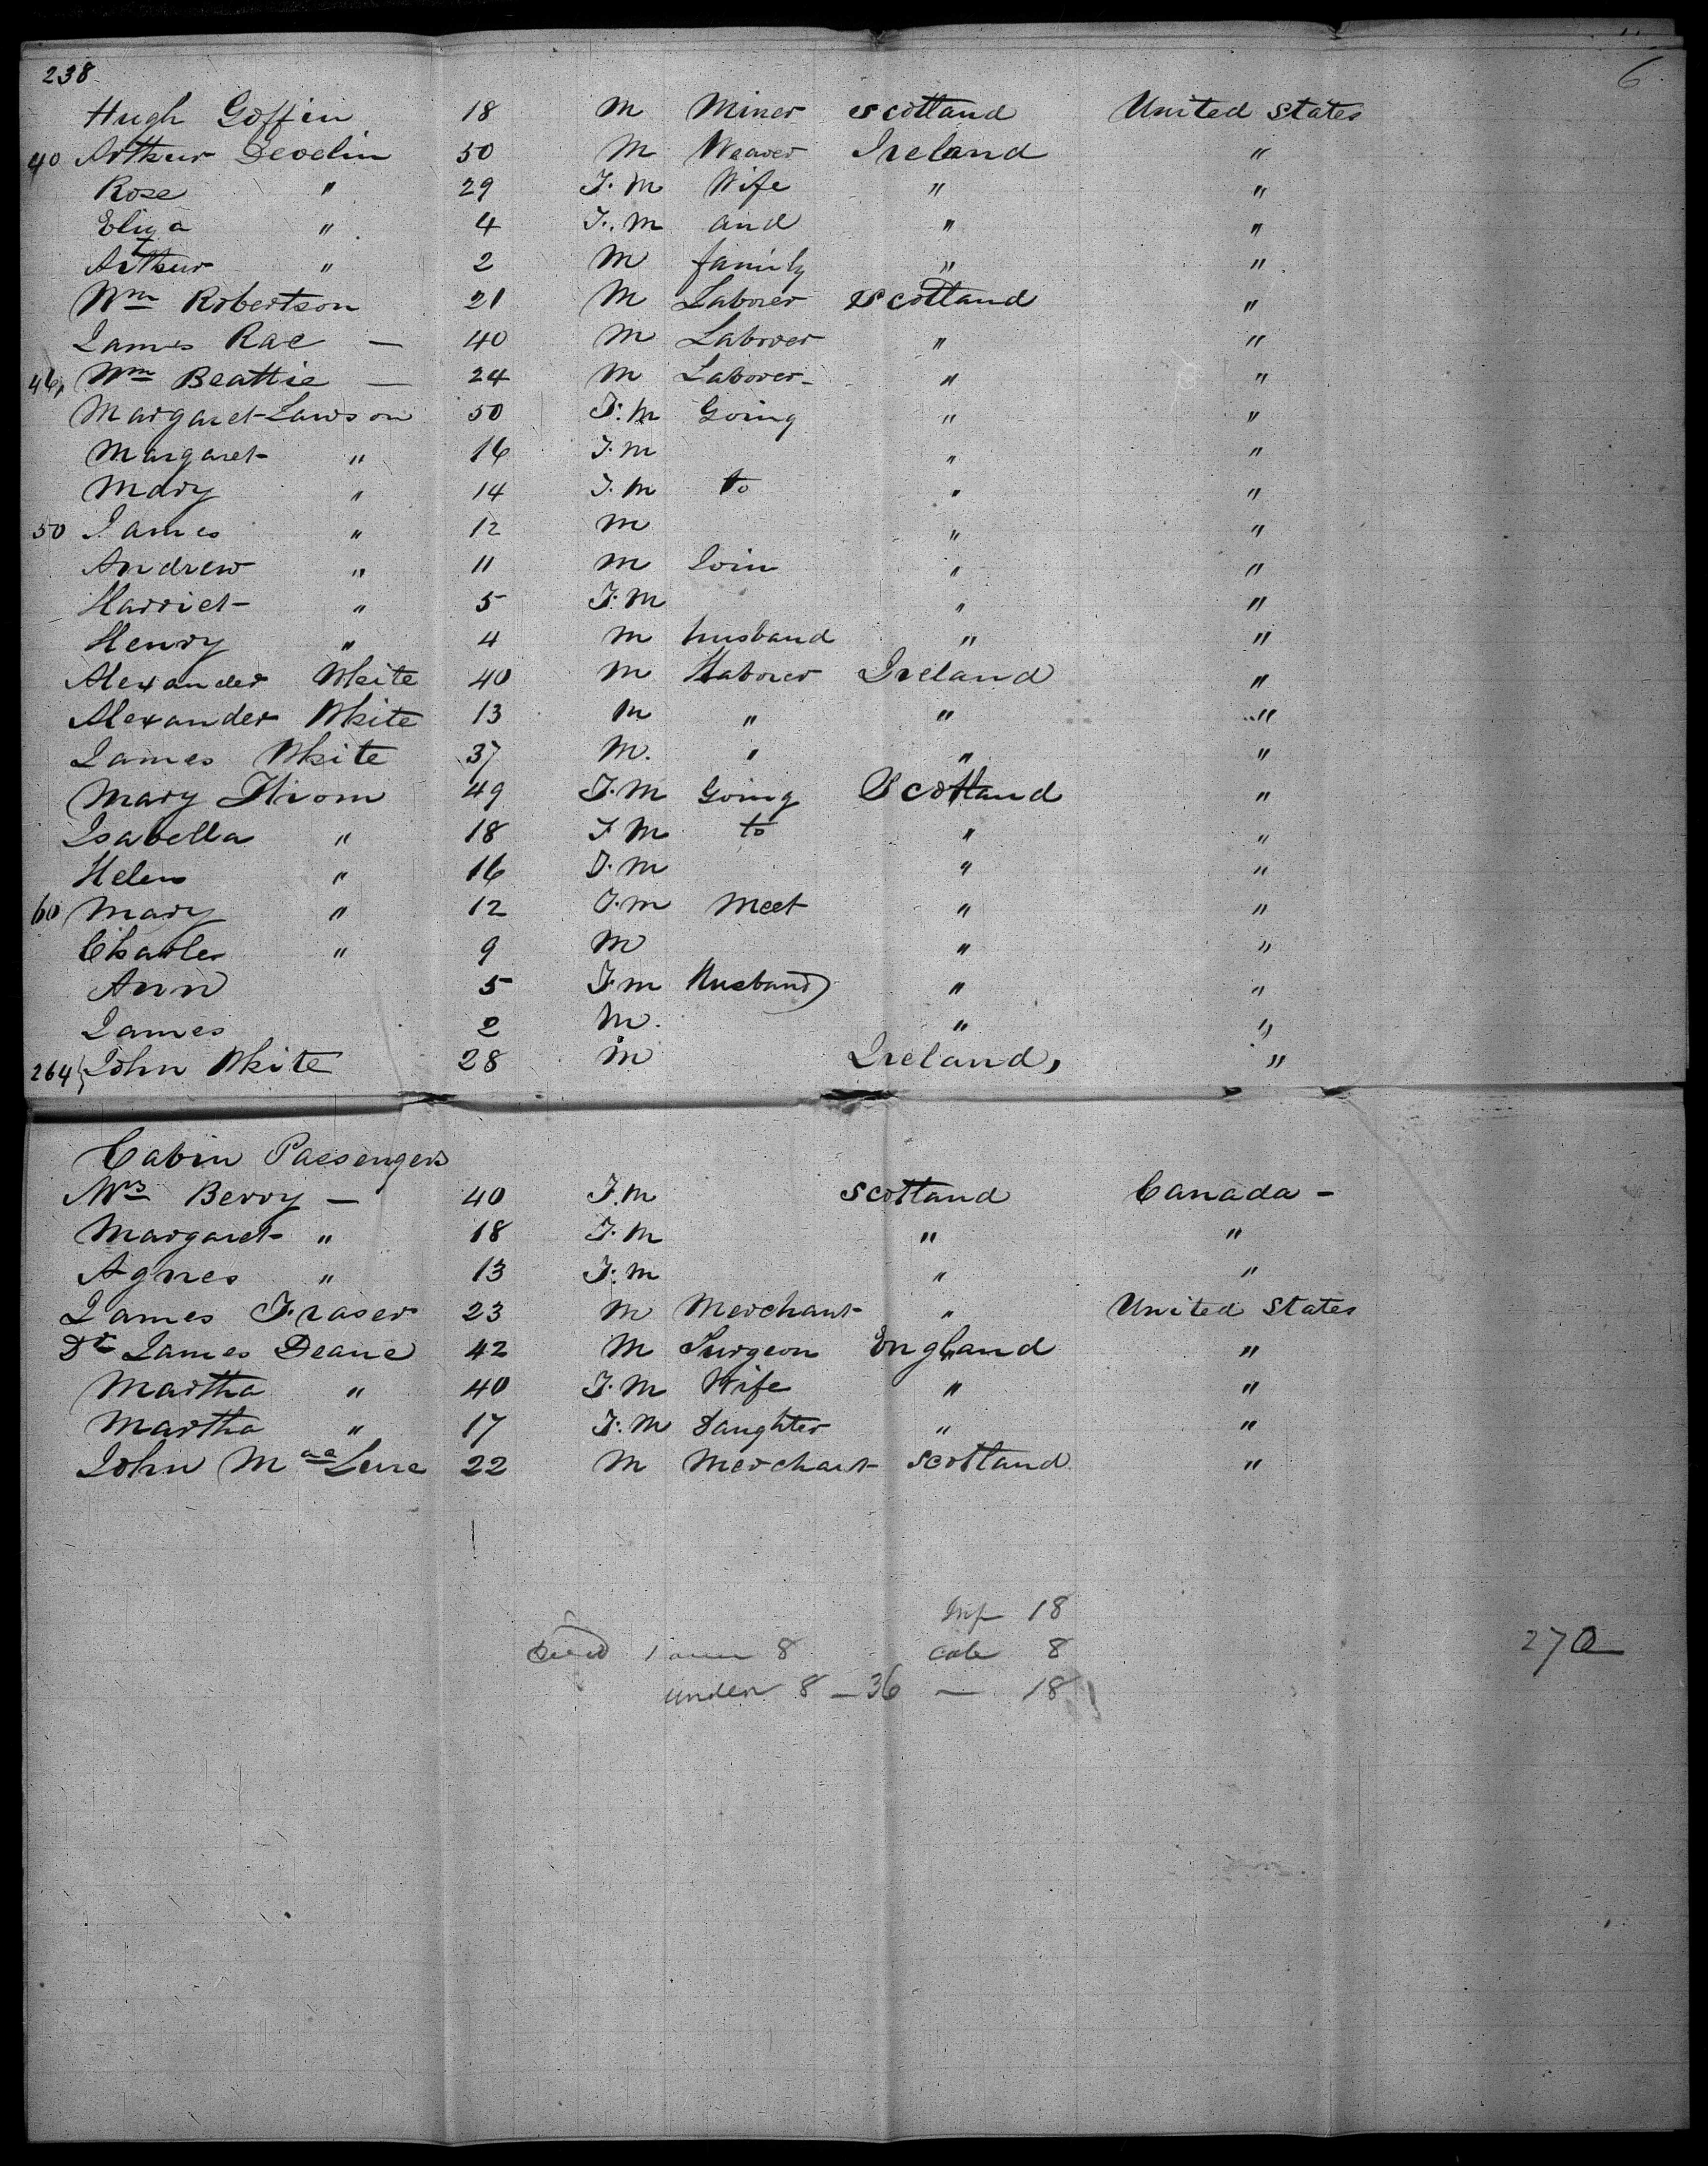 238 6
Hugh Goffin 18 M Miner Scotland United States
40 Arthur Develin 50 M Weaver Ireland "
Rose " 29 F.M Wife " "
Eliza " 4 F.M and " "
Arthur " 2 M family " "
Wm Robertson 21 M Laborer Scotland "
James Rae — 40 M Laborer " "
46, Wm Beattie — 24 M Laborer " "
Margaret Lawson 50 F.M Going " "
Margaret " 16 F.M " "
Mary " 14 F.M to " "
50 James " 12 M " "
Andrew " 11 M Join " "
Harriet " 5 F.M " "
Henry " 4 M husband " "
Alexander White 40 M Laborer Ireland "
Alexander White 13 M " " "
James White 37 M. " " "
Mary Thom 49 F.M Going Scotland "
Isabella " 18 F M to " "
Helen " 16 F.M " "
60 Mary " 12 F.M Meet " "
Charles " 9 M " "
Ann 5 F.M Husband " "
James 2 M. " "
264 John White 28 M Ireland, "
Cabin Passengers
Mrs Berry — 40 F.M Scotland Canada -
Margaret " 18 F.M " "
Agnes " 13 F.M " "
James Fraser 23 M Merchant " United States
Dr James Deane 42 M Surgeon England "
Martha " 40 F.M Wife " "
Martha " 17 F.M daughter " "
John Mac 22 M Merchant Scotland "
Inf 18
1 8 8
270
under 8 — 36 — 18